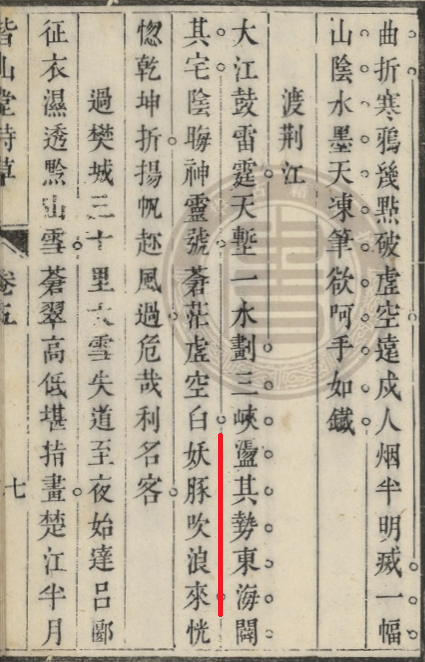 曲折寒鴉幾點破虛空遠戍人烟半明滅一幅
山陰水墨天凍筆欲呵手如鐵
渡荆江
大江鼓雷霆天塹一水劃三峽盪其勢東海闢
其宅陰晦神靈號蒼茫虛空白妖豚吹浪來恍
惚乾坤折揚帆趂風過危哉利名客
過樊城三十里大雪失道至夜始達呂郾
征衣濕透黔山雪蒼翠高低堪指畫楚江半月
皆山堂詩草
卷五
七